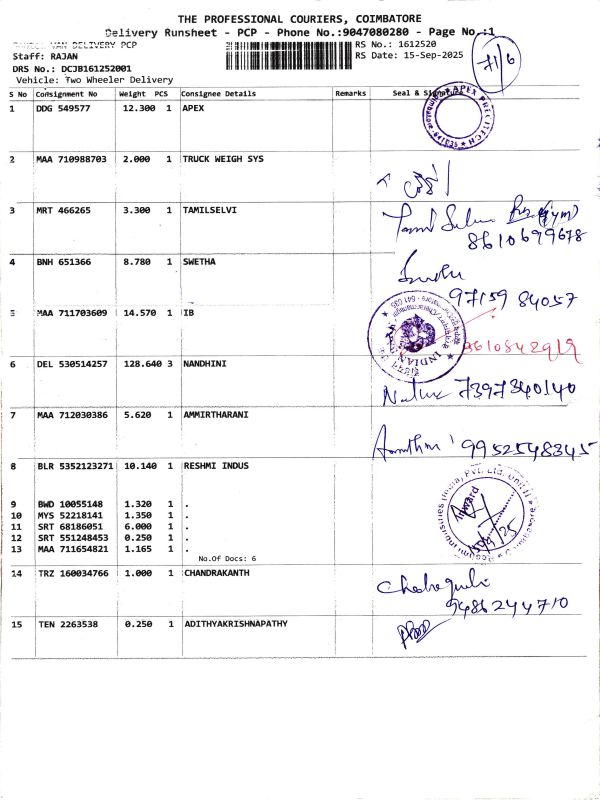 THE PROFESSIONAL COURIERS, COIMBATORE
Delivery Runsheet - PCP - Phone No.:9047080280 - Page No.:1
VAN DELIVERY PCP
RS No.: 1612520
71/6
Staff: RAJAN
RS Date: 15-Sep-2025
DRS No.: DCJB161252001
Vehicle: Two Wheeler Delivery
S No Consignment No Weight PCS Consignee Details Remarks Seal & Signature
1 DDG 549577 12.300 1 APEX
APEX PRECITECH
2 MAA 710988703 2.000 1 TRUCK WEIGH SYS
3 MRT 466265 3.300 1 TAMILSELVI
8610699678
4 BNH 651366 8.780 1 SWETHA
97159 84057
5 MAA 711703609 14.570 1 IB
INDIAN
8610842919
6 DEL 530514257 128.640 3 NANDHINI
7397340140
7 MAA 712030386 5.620 1 AMMIRTHARANI
9952548345
8 BLR 5352123271 10.140 1 RESHMI INDUS
Inward
9 BWD 10055148 1.320 1 .
10 MYS 52218141 1.350 1 .
11 SRT 68186051 6.000 1 .
12 SRT 551248453 0.250 1 .
13 MAA 711654821 1.165 1 .
No.Of Docs: 6
14 TRZ 160034766 1.000 1 CHANDRAKANTH
9486244710
15 TEN 2263538 0.250 1 ADITHYAKRISHNAPATHY